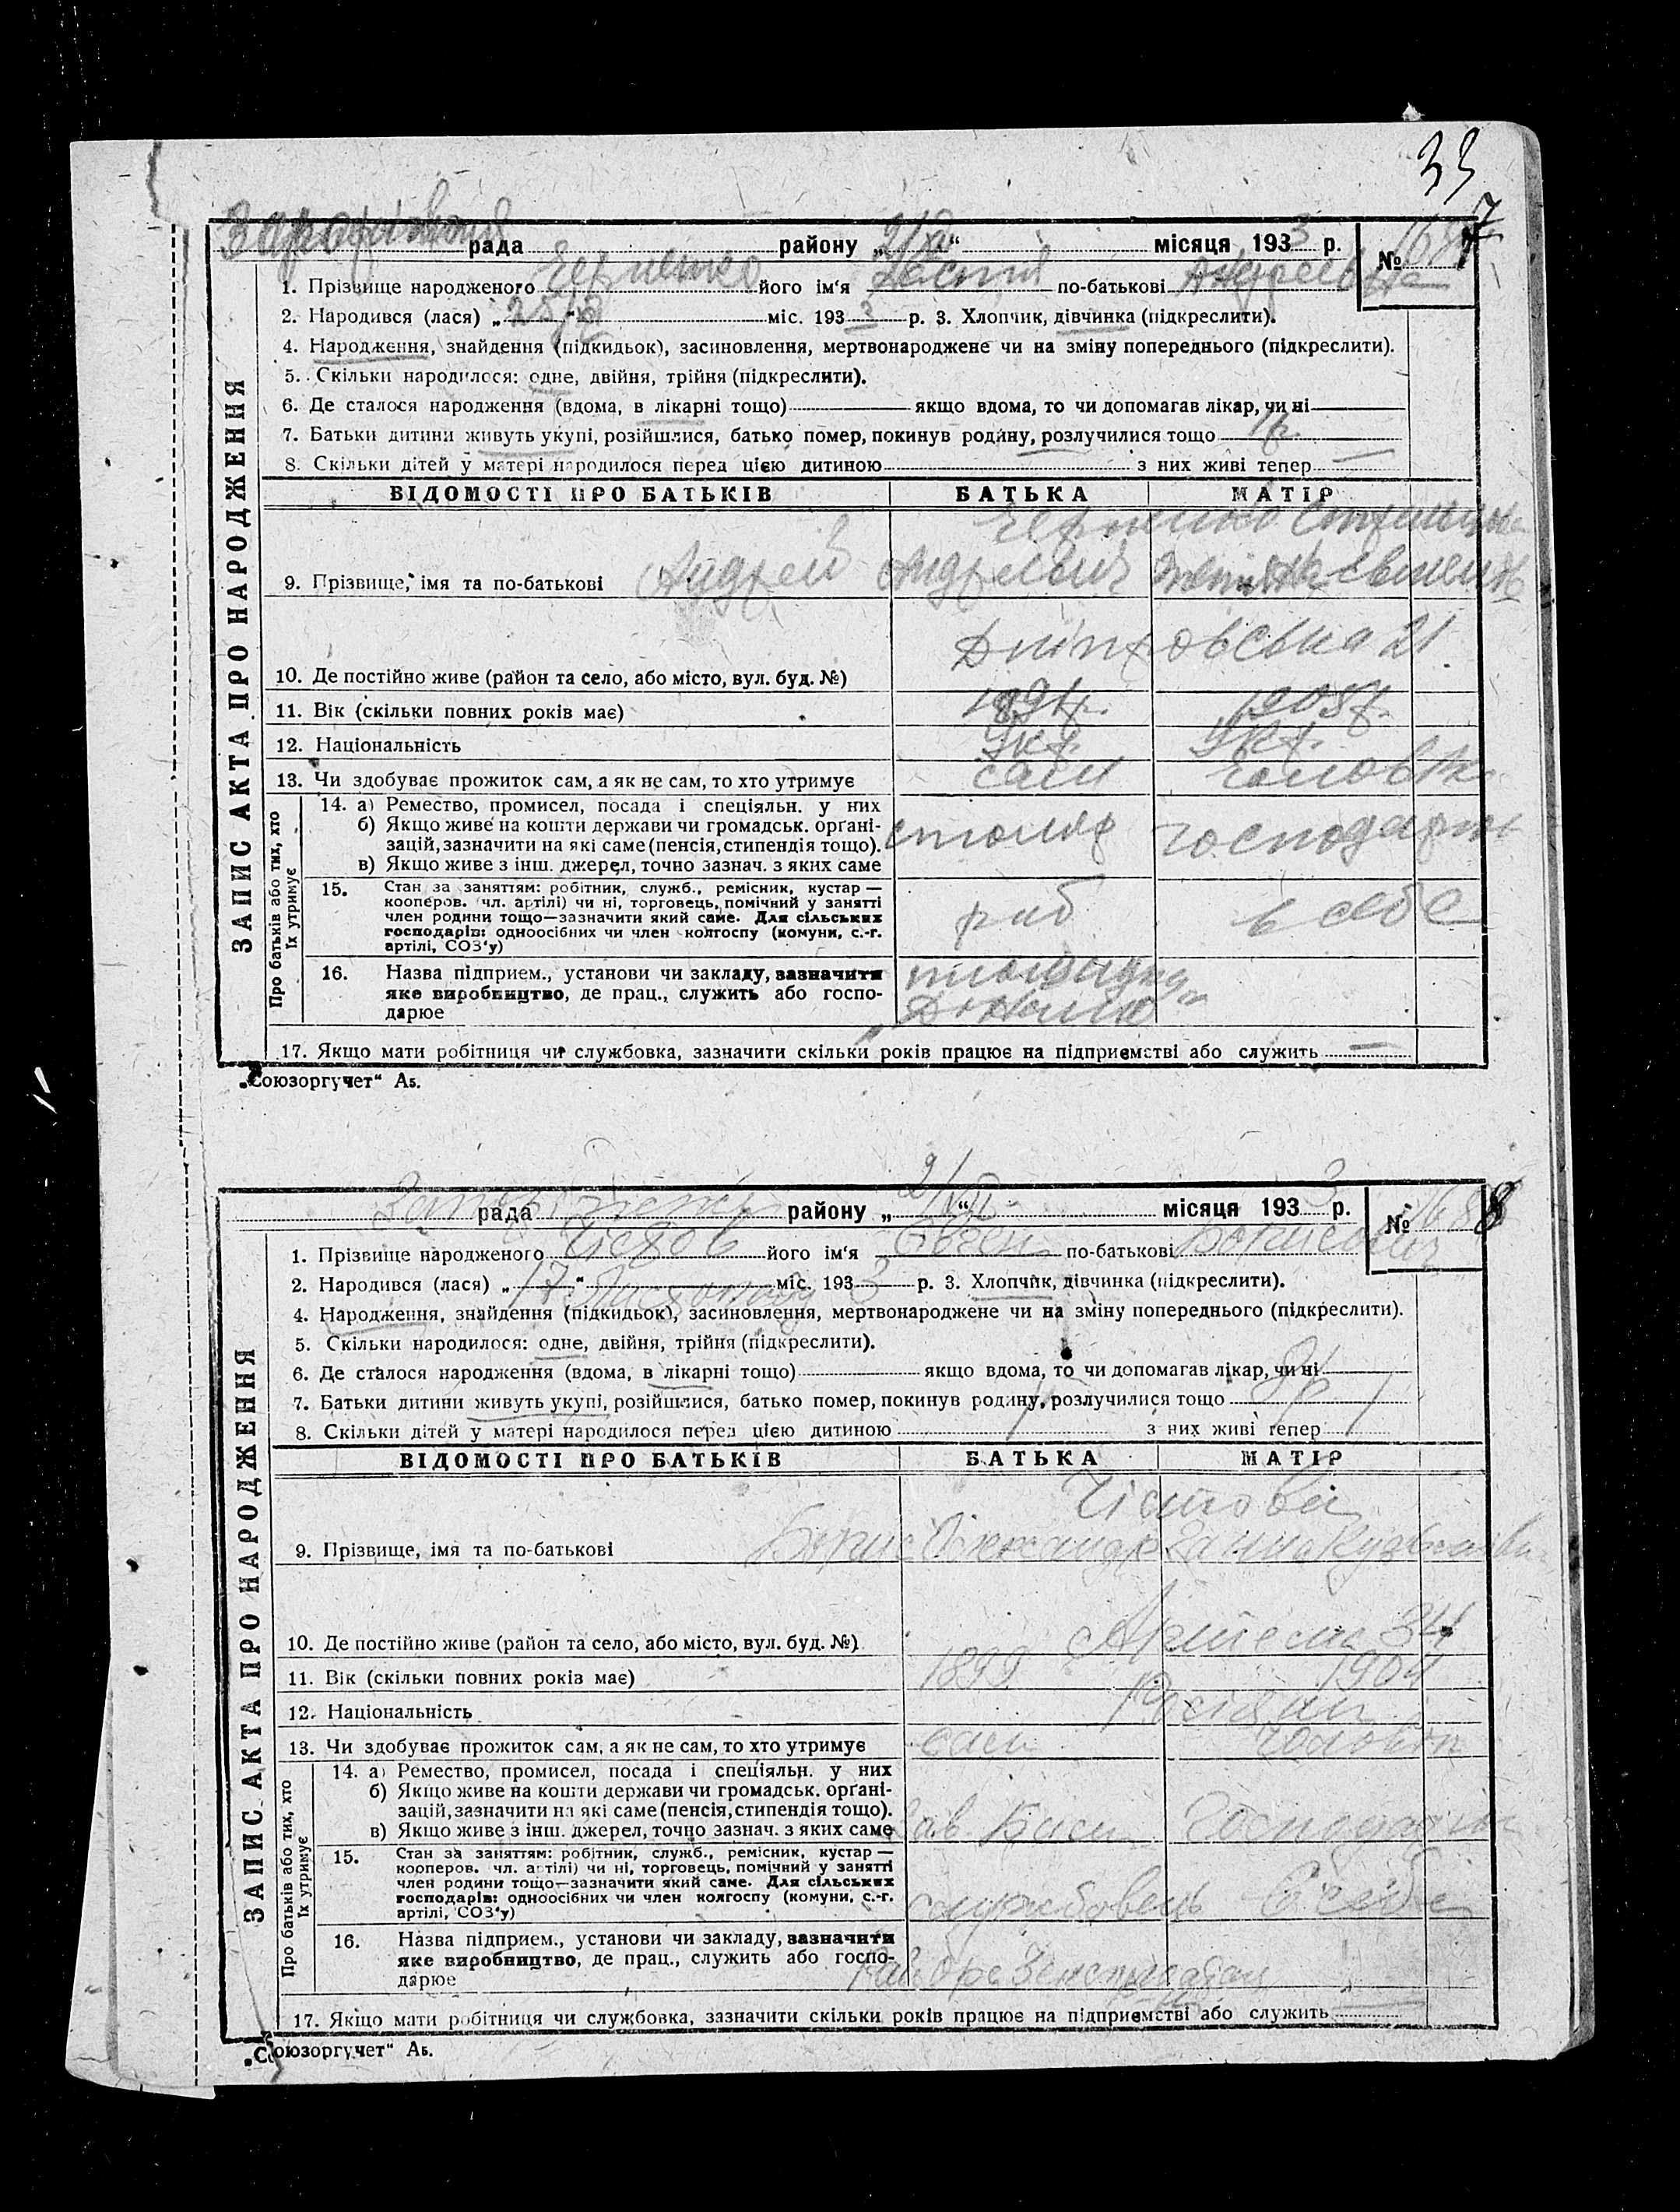 33
рада району „21/XI“ місяця 1933 р. № 1687
1. Прізвище народженого його ім‘я по-батькові Андреевна
2. Народився (лася) „25/X“ міс. 1933 р. 3. Хлопчик, дівчинка (підкреслити).
4. Народження, знайдення (підкидьок), засиновлення, мертвонароджене чи на зміну попереднього (підкреслити).
5. Скільки народилося: одне, двійня, трійня (підкреслити).
6. Де сталося народження (вдома, в лікарні тощо) якщо вдома, то чи допомагав лікар, чи ні
7. Батьки дитини живуть укупі, розійшлися, батько помер, покинув родину, розлучилися тощо 1р.
8. Скільки дітей у матері народилося перед цією дитиною з них живі тепер —
ВІДОМОСТІ ПРО БАТЬКІВ БАТЬКА МАТІР
9. Прізвище, імя та по-батькові Андрей Андреевич
10. Де постійно живе (район та село, або місто, вул. буд. №) Дніпровська 21
11. Вік (скільки повних років має) 1891р. 1905р.
12. Національність Укр. Укр.
13. Чи здобуває прожиток сам, а як не сам, то хто утримує сам чоловік
14. а) Ремество, промисел, посада і спеціяльн. у них
б) Якщо живе на кошти держави чи громадськ. орґані-
зацій, зазначити на які саме (пенсія, стипендія тощо).
в) Якщо живе з інш. джерел, точно зазнач. з яких саме
столяр господарка
15. Стан за заняттям: робітник, служб., ремісник, кустар —
кооперов. (чл. артілі) чи ні, торговець, помічний у занятті
член родини тощо—зазначити який саме. Для сільських
господарів: одноосібних чи член колгоспу (комуни, с.-г.
артілі, СОЗ‘у)
роб в себе
16. Назва підприєм., установи чи закладу, зазначити
яке виробництво, де прац., служить або госпо-
дарює
17. Якщо мати робітниця чи службовка, зазначити скільки років працює на підприємстві або служить —
ЗАПИС АКТА ПРО НАРОДЖЕННЯ
Про батьків або тих, хто їх утримує
„Союзоргучет“ А5.
рада району „2/XII“ місяця 1933 р. № 1688
1. Прізвище народженого Чістов його ім‘я Євген по-батькові Борисович
2. Народився (лася) „17“ Листопада міс. 1933 р. 3. Хлопчик, дівчинка (підкреслити).
4. Народження, знайдення (підкидьок), засиновлення, мертвонароджене чи на зміну попереднього (підкреслити).
5. Скільки народилося: одне, двійня, трійня (підкреслити).
6. Де сталося народження (вдома, в лікарні тощо) якщо вдома, то чи допомагав лікар, чи ні
7. Батьки дитини живуть укупі, розійшлися, батько помер, покинув родину, розлучилися тощо
8. Скільки дітей у матері народилося перед цією дитиною 1 з них живі тепер 1
ВІДОМОСТІ ПРО БАТЬКІВ БАТЬКА МАТІР
Чістови
9. Прізвище, імя та по-батькові Борис Олександр Ганна Кузьмінівна
10. Де постійно живе (район та село, або місто, вул. буд. №) Артема 34
11. Вік (скільки повних років має) 1899 1904
12. Національність Росіяни
13. Чи здобуває прожиток сам, а як не сам, то хто утримує сам чоловік
14. а) Ремество, промисел, посада і спеціяльн. у них
б) Якщо живе на кошти держави чи громадськ. орґані-
зацій, зазначити на які саме (пенсія, стипендія тощо).
в) Якщо живе з інш. джерел, точно зазнач. з яких саме
Зав. Господарка
15. Стан за заняттям: робітник, служб., ремісник, кустар —
кооперов. чл. артілі) чи ні, торговець, помічний у занятті
член родини тощо—зазначити який саме. Для сільських
господарів: одноосібних чи член колгоспу (комуни, с.-г.
артілі, СОЗ‘у)
службовець В себе
16. Назва підприєм., установи чи закладу, зазначити
яке виробництво, де прац., служить або госпо-
дарює
17. Якщо мати робітниця чи службовка, зазначити скільки років працює на підприємстві або служить
ЗАПИС АКТА ПРО НАРОДЖЕННЯ
Про батьків або тих, хто їх утримує
„Союзоргучет“ А5.